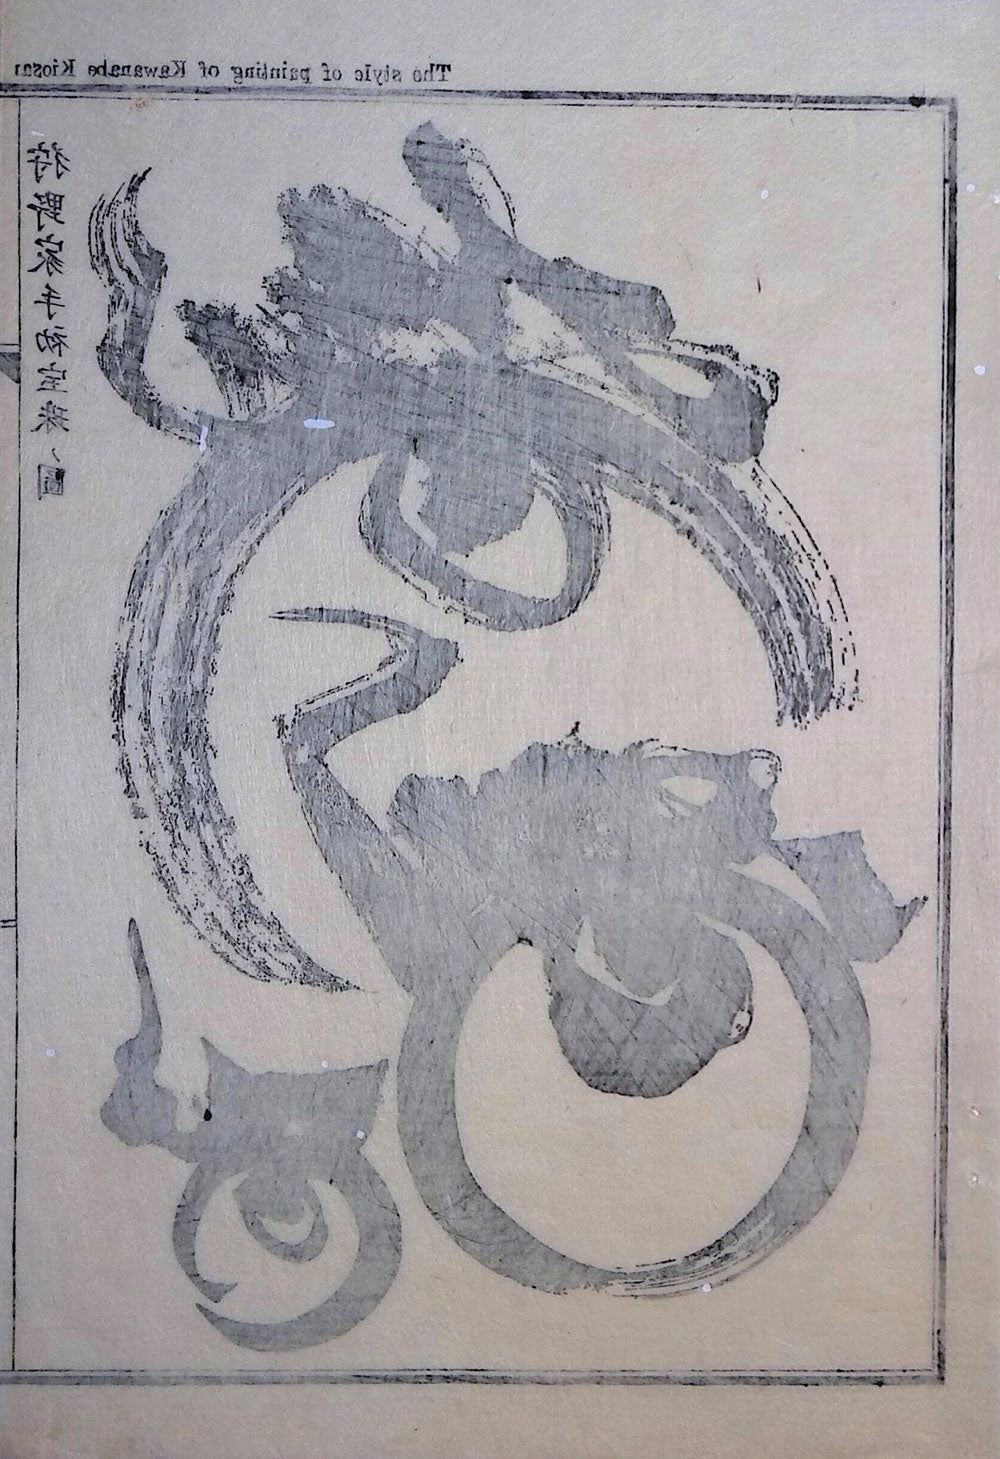 The style of painting of Kawanabe Kiosai
狩野家手初宝珠ノ圖